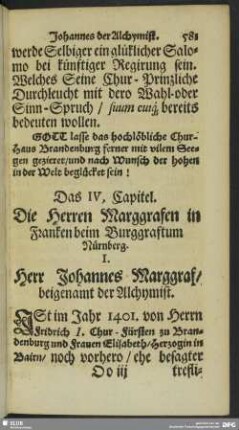 Johannes der Alchymist. 581
werde Selbiger ein glüklicher Salo-
mo bei künftiger Regirung sein.
Welches Seine Chur-Prinzliche
Durchleucht mit dero Wahl-oder
Sinn-Spruch / suum cuiq; bereits
bedeuten wollen.
GOTT lasse das hochlöbliche Chur-
Haus Brandenburg ferner mit vilem See-
gen gezieret/und nach Wunsch der hohen
in der Welt beglücket sein!
Das IV. Capitel.
Die Herren Marggrafen in
Franken beim Burggraftum
Nürnberg.
I.
Herr Johannes Marggraf/
beigenamt der Alchymist.
IST im Jahr 1401. von Herrn
Fridrich I. Chur-Fürsten zu Bran-
denburg und Frauen Elisabeth/Herzogin in
Baiern/ noch vorhero/ ehe besagter
Oo iij trefli-
SLUB
DFG